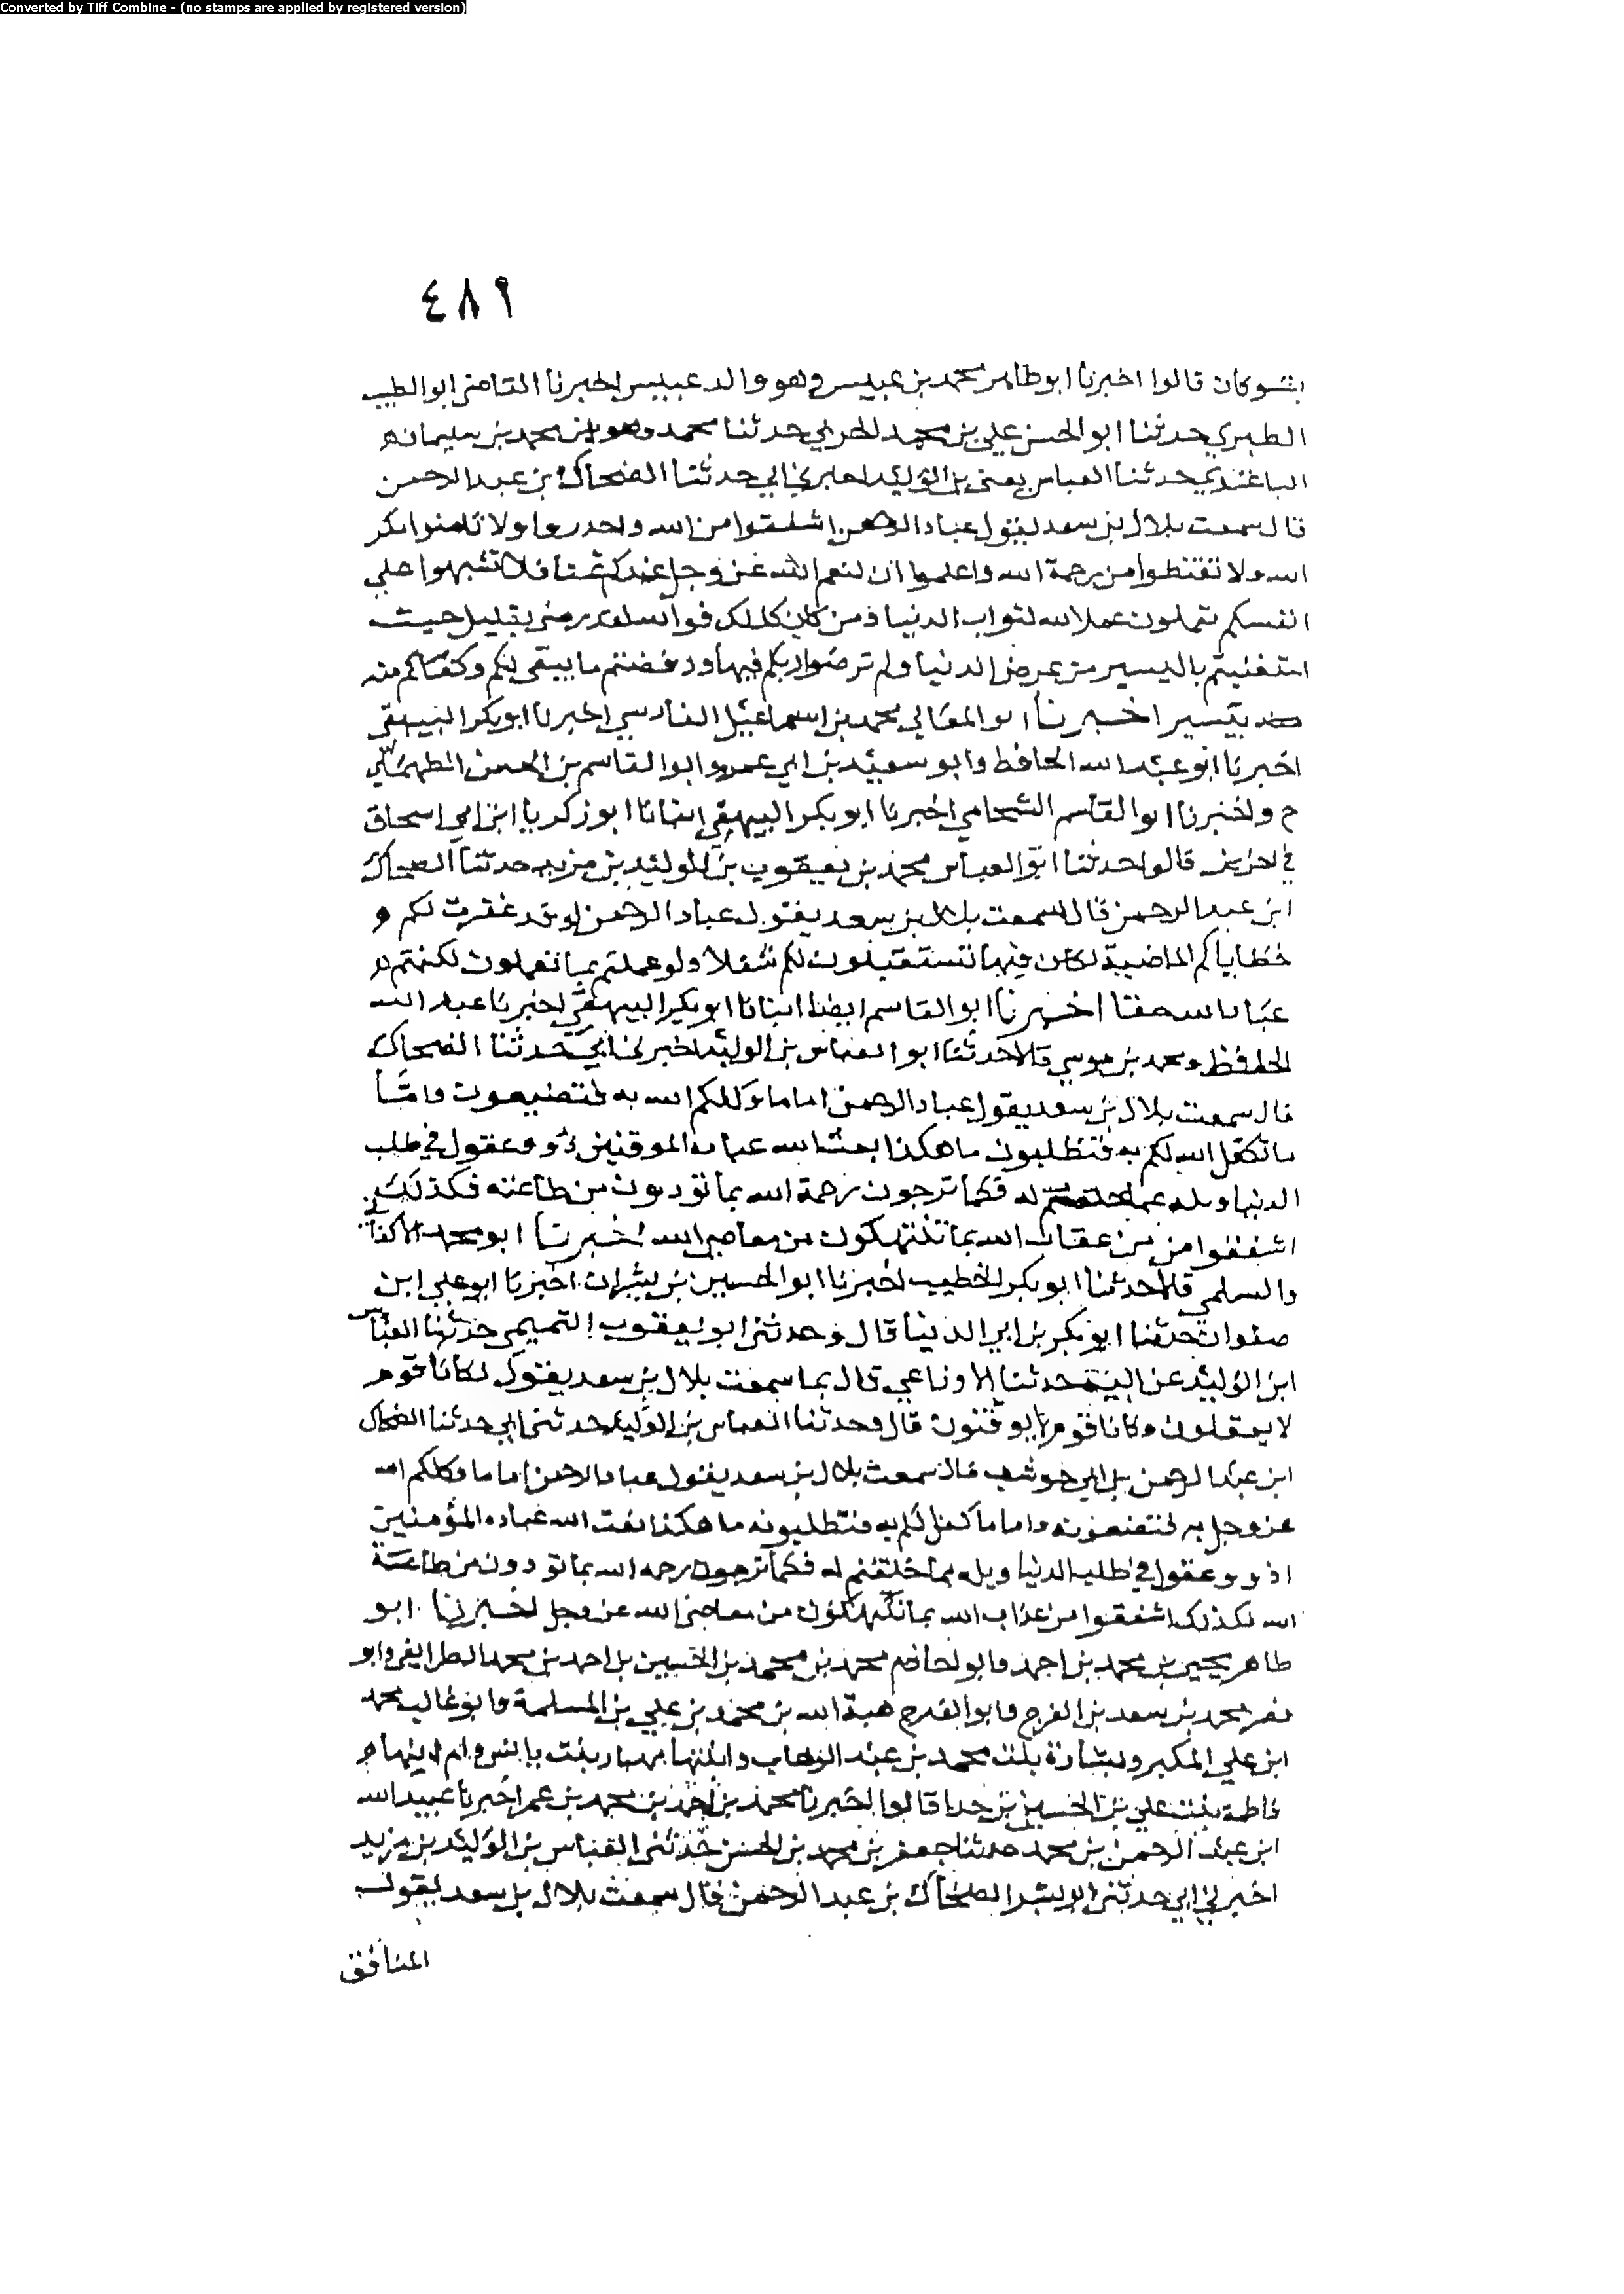 Converted by Tiff Combine - (no stamps are applied by registered version)
٤٨٩
قالوا اخبرنا ابو طاهر محمد بن عبيس وهو والد عبيس اخبرنا القاضي ابو الطيب
الطبري حدثنا ابو الحسن علي بن محمد الحربي حدثنا محمد وهو ابن محمد بن سليمان
الباغندي حدثنا العباس يعني بن الوليد اخبرني ابي حدثنا الضحاك بن عبد الرحمن
قال سمعت بلال بن سعد يقول عباد الرحمن اشفقوا من الله واحذروا ولا تامنوا مكر
الله ولا تقنطوا من رحمة الله واعلموا ان لنعم الله عز وجل عندكم ثمنا فلا تشبهوا علي
انفسكم تعملون عمل الله لثواب الدنيا ومن كان كذلك فوالله لقد رضي بقليل حيث
استغنيتم باليسير من عرض الدنيا ولم ترضوا ربكم فيها ورفضتم ما يبقي لكم وكفاكم منه
بيسير اخبرنا ابو المعالي محمد بن اسماعيل الفارسي اخبرنا ابو بكر البيهقي
اخبرنا ابو عبد الله الحافظ وابو سعيد بن ابي عمرو وابو القاسم بن الحسن
ح واخبرنا ابو القاسم الشحامي اخبرنا ابو بكر البيهقي انبانا ابو زكريا ابن ابي اسحاق
في اخرين قالوا حدثنا ابو العباس محمد بن يعقوب بن الوليد بن مزيد حدثنا الضحاك
ابن عبد الرحمن قال سمعت بلال بن سعد يقول عباد الرحمن لو قد غفرت لكم
خطاياكم الماضية لكان فيما تستقبلون لكم شغلا ولو عملتم بما تعلمون لكنتم
عباد الله حقا اخبرنا ابو القاسم ايضا انبانا ابو بكر البيهقي اخبرنا عبد الله
الحافظ ومحمد بن موسي قالا حدثنا ابو العباس بن الوليد اخبرني ابي حدثنا الضحاك
قال سمعت بلال بن سعد يقول عباد الرحمن اما ما وكلكم الله به فتضيعون واما
ما تكفل الله لكم به فتطلبون ما هكذا بعث الله عباده الموقنين ذوو عقول في طلب
الدنيا وبله عما خلقتم له فكما ترجون رحمة الله بما تؤدون من طاعته فكذلك
اشفقوا من من عقاب الله بما تنتهكون من معاصي الله اخبرنا ابو محمد الاكفاني
والسلمي قالا حدثنا ابو بكر الخطيب اخبرنا ابو الحسين بن بشران اخبرنا ابو علي ابن
صفوان حدثنا ابو بكر بن ابي الدنيا قال وحدثني ابو يعقوب التميمي حدثنا العباس
ابن الوليد عن ابيه حدثنا الاوزاعي قال سمعت بلال بن سعد يقول لكانا قوم
لا يعقلون وكانا قوم لا يوقنون قال وحدثنا العباس بن الوليد حدثني ابي حدثنا الضحاك
ابن عبد الرحمن بن ابي حوشب قال سمعت بلال بن سعد يقول عباد الرحمن اما ما وكلكم الله
عز وجل به فتضيعونه واما ما تكفل لكم به فتطلبونه ما هكذا نعت الله عباده المؤمنين
اذوو عقول في طلب الدنيا وبله عما خلقتم له فكما ترجون رحمه الله بما تودون من طاعة
الله فكذلك اشفقوا من عذاب الله بما تنتهكون من معاصي الله عز وجل اخبرنا ابو
طاهر يحيى بن محمد بن احمد وابو المحاسن محمد بن محمد بن الحسين بن احمد بن محمد الطرايفي وابو
نصر محمد بن سعد بن الفرج وابو الفرج هبة الله بن محمد بن علي بن المسلمة وابو غالب محمد
ابن علي المكبر وبشارة بنت محمد بن عبد الوهاب وابنتها
فاطمة بنت علي بن الحسين بن جدا قالوا اخبرنا محمد بن احمد بن محمد بن عمر اخبرنا عبيد الله
ابن عبد الرحمن بن محمد حدثنا جعفر بن محمد بن الحسن حدثني العباس بن الوليد بن مزيد
اخبرني ابي حدثني ابو بشر الضحاك بن عبد الرحمن قال سمعت بلال بن سعد يقول
المنافق